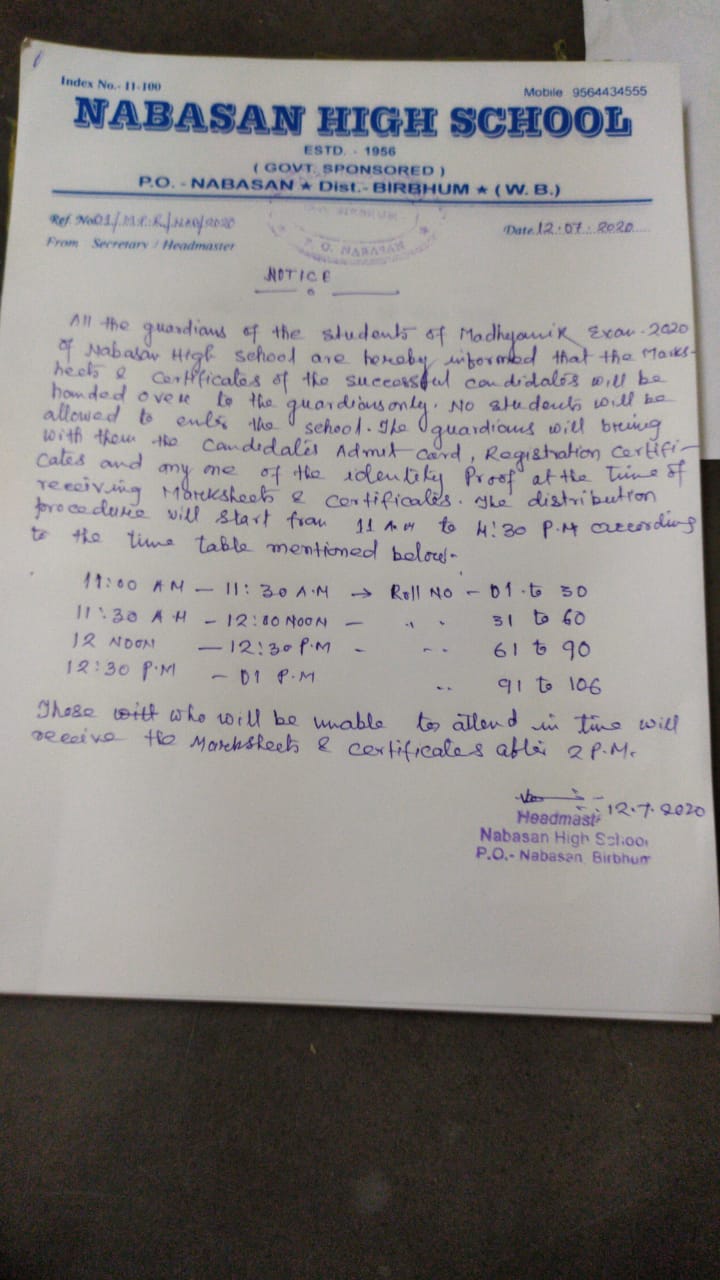 Index No.- 11-100
Mobile 9564434555
NABASAN HIGH SCHOOL
ESTD. - 1956
( GOVT. SPONSORED )
P.O. - NABASAN ★ Dist.- BIRBHUM ★ ( W. B.)
Ref. No 01/M.P.R/NAO/2020
Date 12.07.2020
From Secretary / Headmaster
P. O. NABASAN
NOTICE
All the guardians of the students of Madhyamik Exam-2020
of Nabasan High School are hereby informed that the Marks-
heets & Certificates of the successful candidates will be
handed over to the guardians only. No students will be
allowed to enter the school. The guardians will bring
with them the Candidates Admit Card, Registration Certifi-
cates and any one of the identity Proof at the time of
receiving Marksheets & Certificates. The distribution
procedure will start from 11 A.M to 4:30 P.M according
to the time table mentioned below-
11:00 AM - 11:30 A.M → Roll No - 01 to 30
11:30 A.M - 12:00 NOON - " " 31 to 60
12 NOON - 12:30 P.M - " " 61 to 90
12:30 P.M - 01 P.M " 91 to 106
Those who will be unable to attend in time will
receive the Marksheets & Certificates after 2 P.M.
12.7.2020
Headmast
Nabasan High School
P.O.- Nabasan, Birbhum